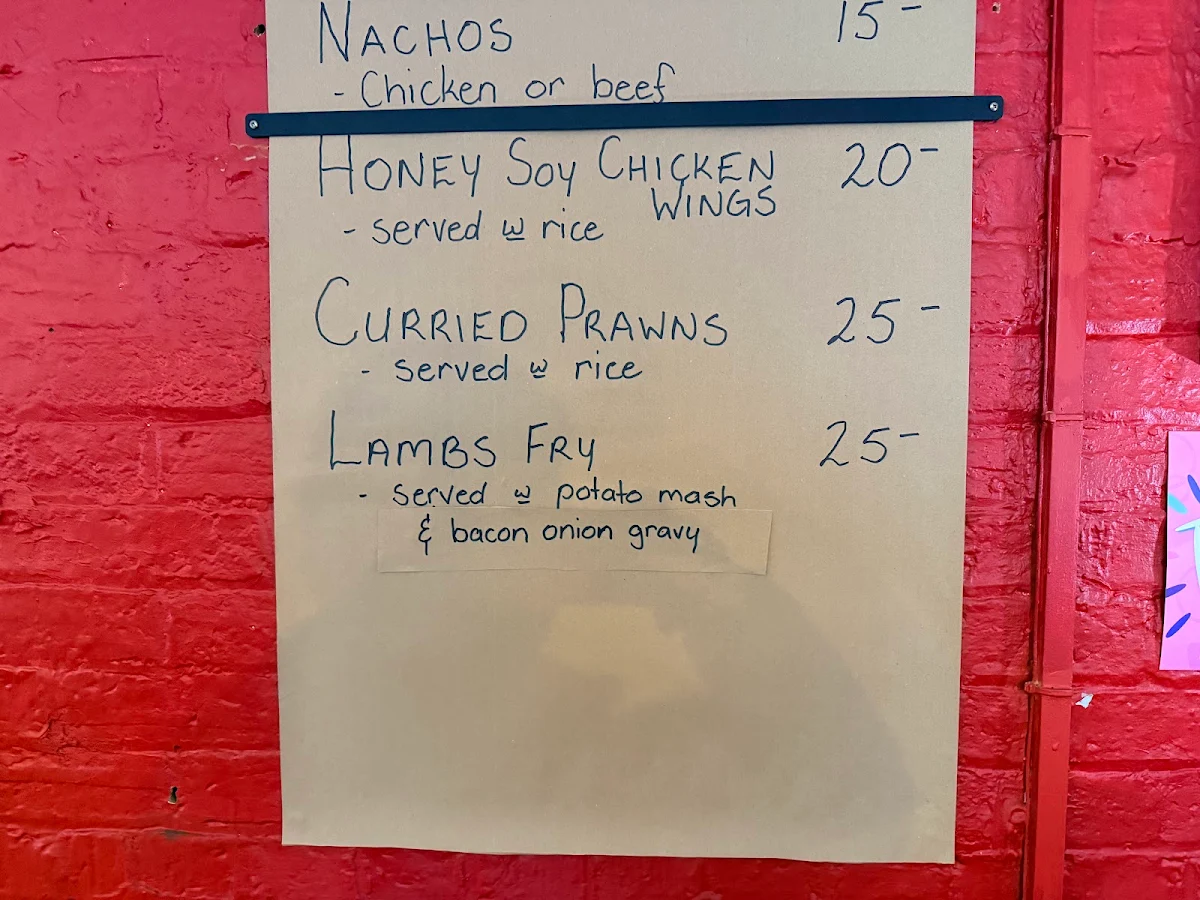 NACHOS 15-
- Chicken or beef
HONEY SOY CHICKEN 20-
WINGS
- served w rice
CURRIED PRAWNS 25-
- served w rice
LAMBS FRY 25-
- served w potato mash
& bacon onion gravy